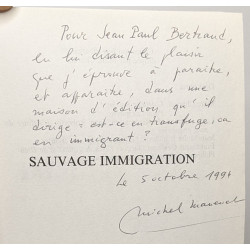 Pour Jean Paul Bertrand,
en lui disant le plaisir
que j'éprouve à paraître,
et apparaître, dans une
maison d'édition qu'il
dirige = est-ce en transfuge, ou
en immigrant ?
SAUVAGE IMMIGRATION
Le 5 octobre 1994
Michel